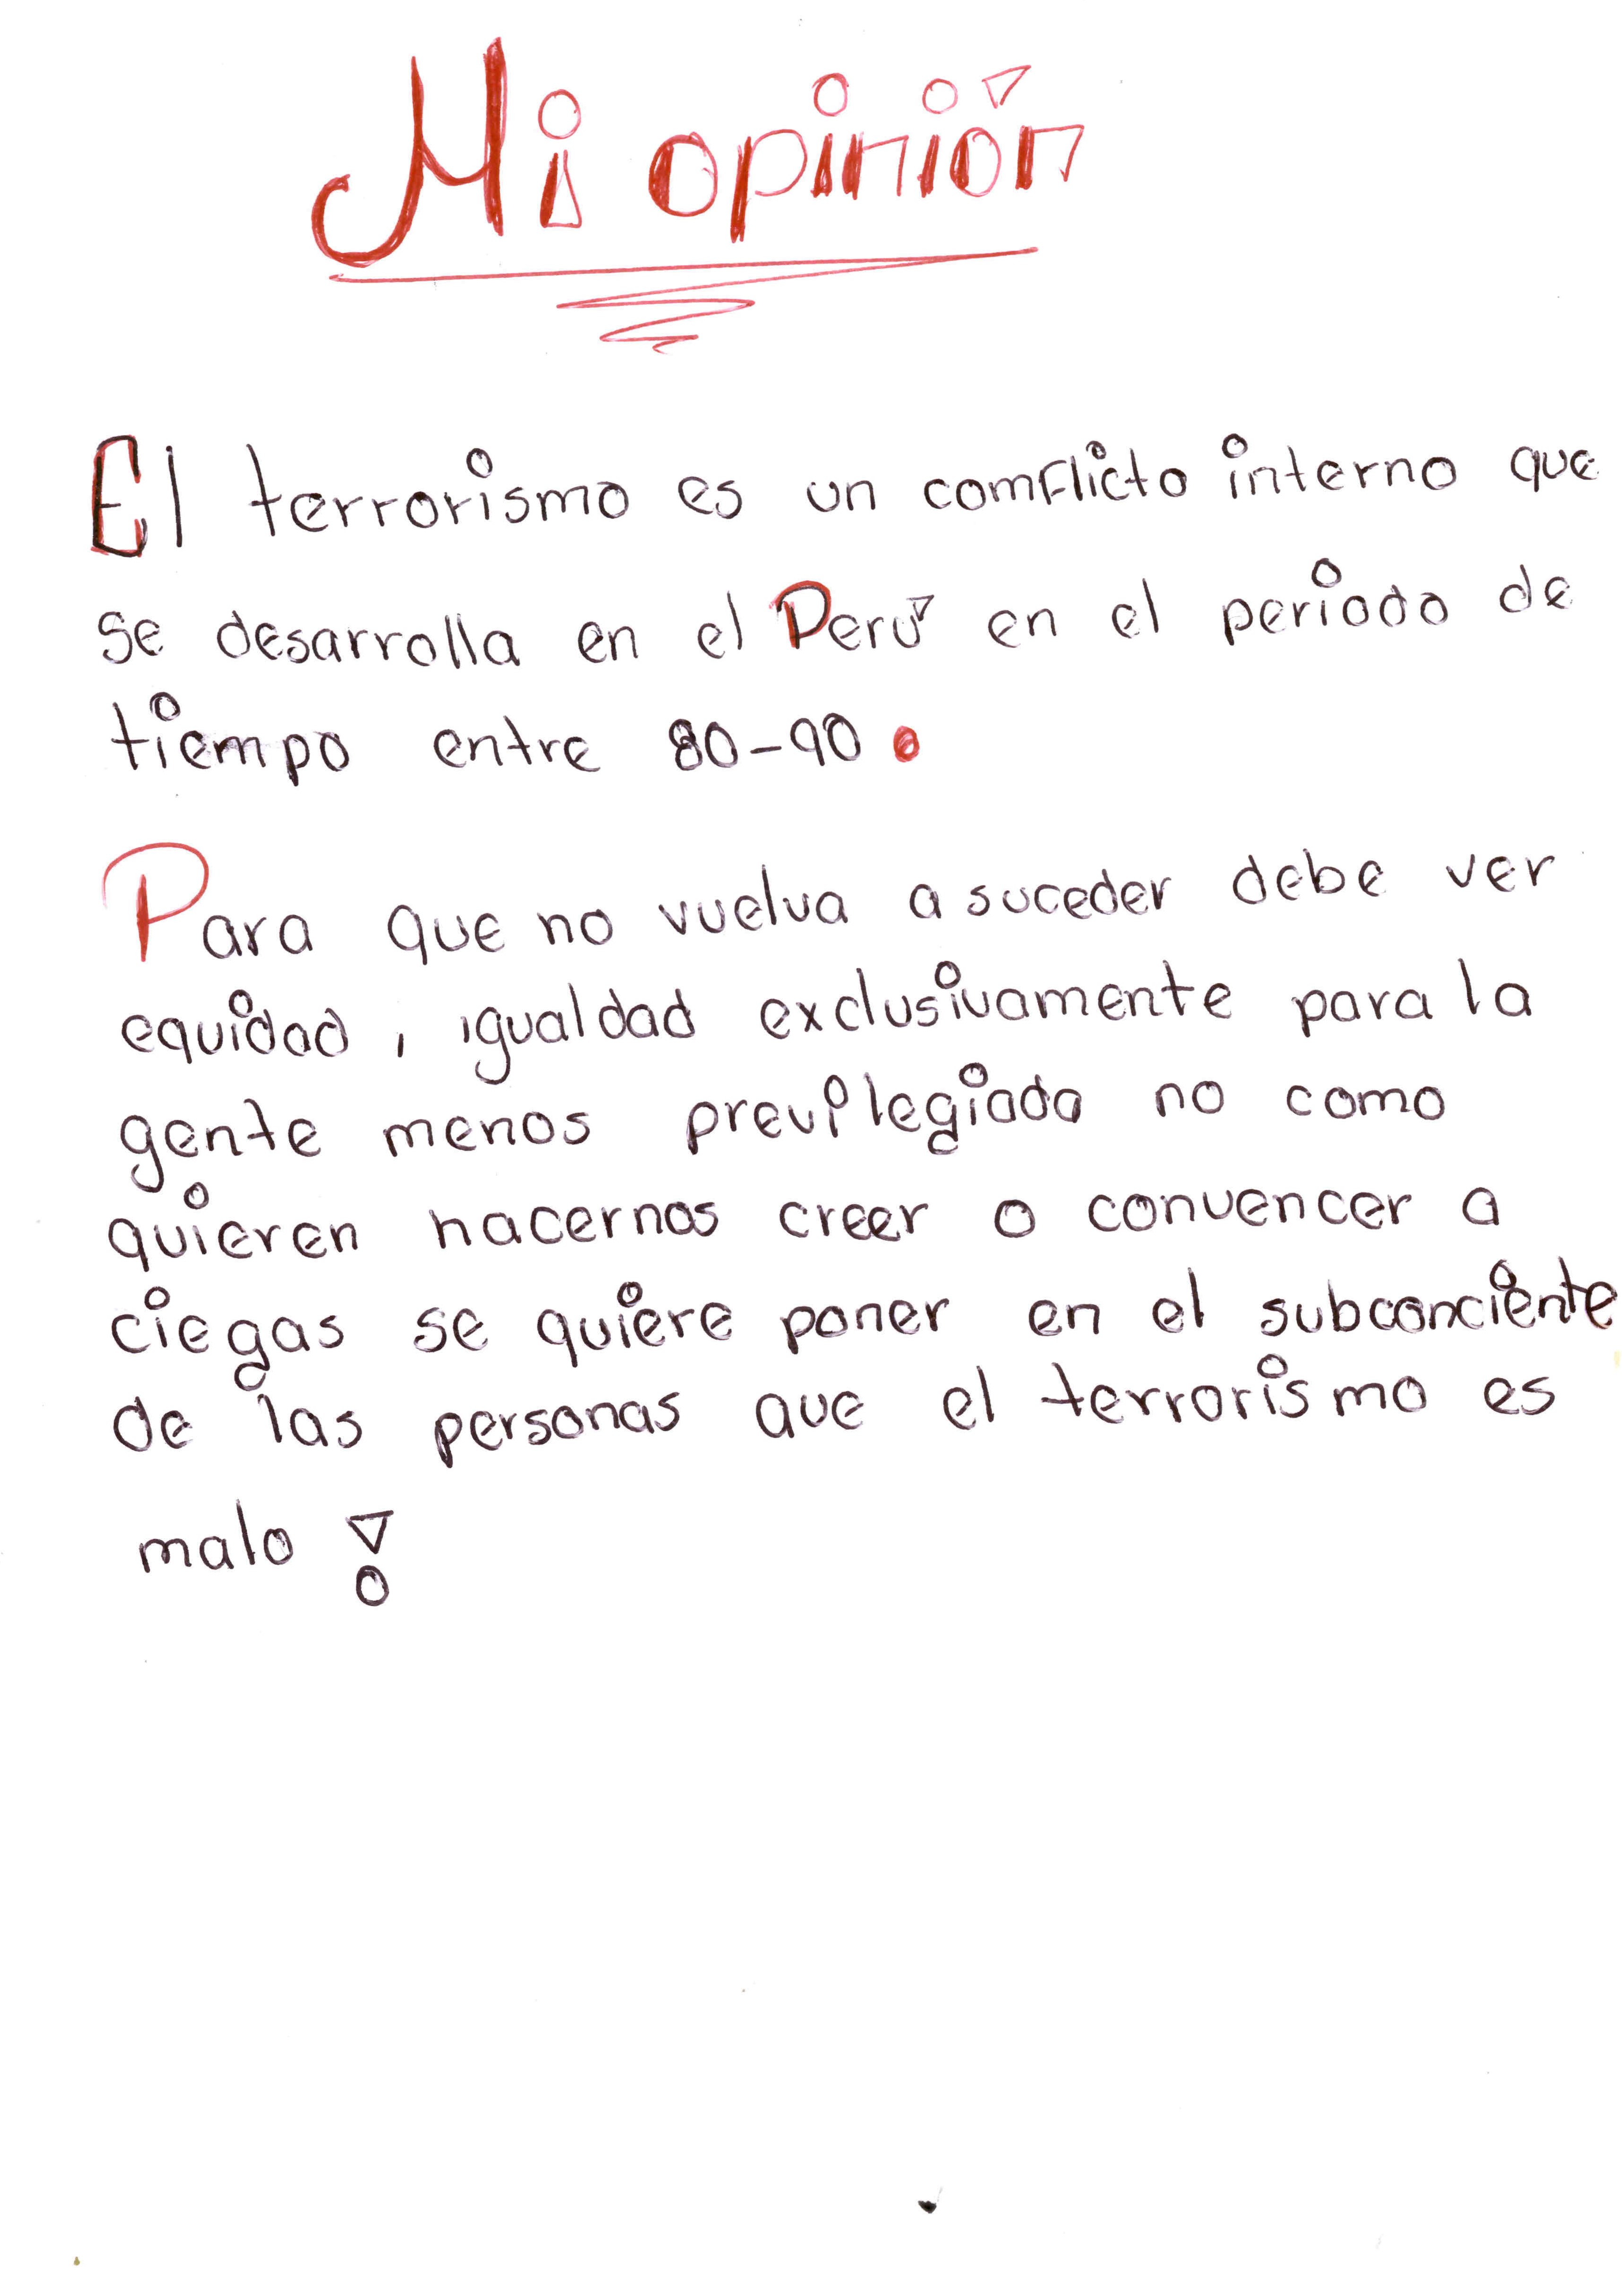 Mi opinión
El terrorismo es un comflicto interno que
se desarrolla en el Perú en el periodo de
tiempo entre 80-90.
Para que no vuelva a suceder debe ver
equidad, igualdad exclusivamente para la
gente menos previlegiada no como
quieren hacernos creer o convencer a
ciegas se quiere poner en el subconciente
de las personas que el terrorismo es
malo!